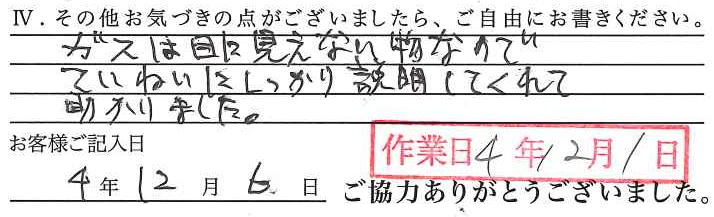 Ⅳ．その他お気づきの点がございましたら、ご自由にお書きください。
ガスは目に見えない物なので
ていねいにしっかり説明してくれて
助かりました。
お客様ご記入日
作業日4年12月1日
4年12月6日 ご協力ありがとうございました。